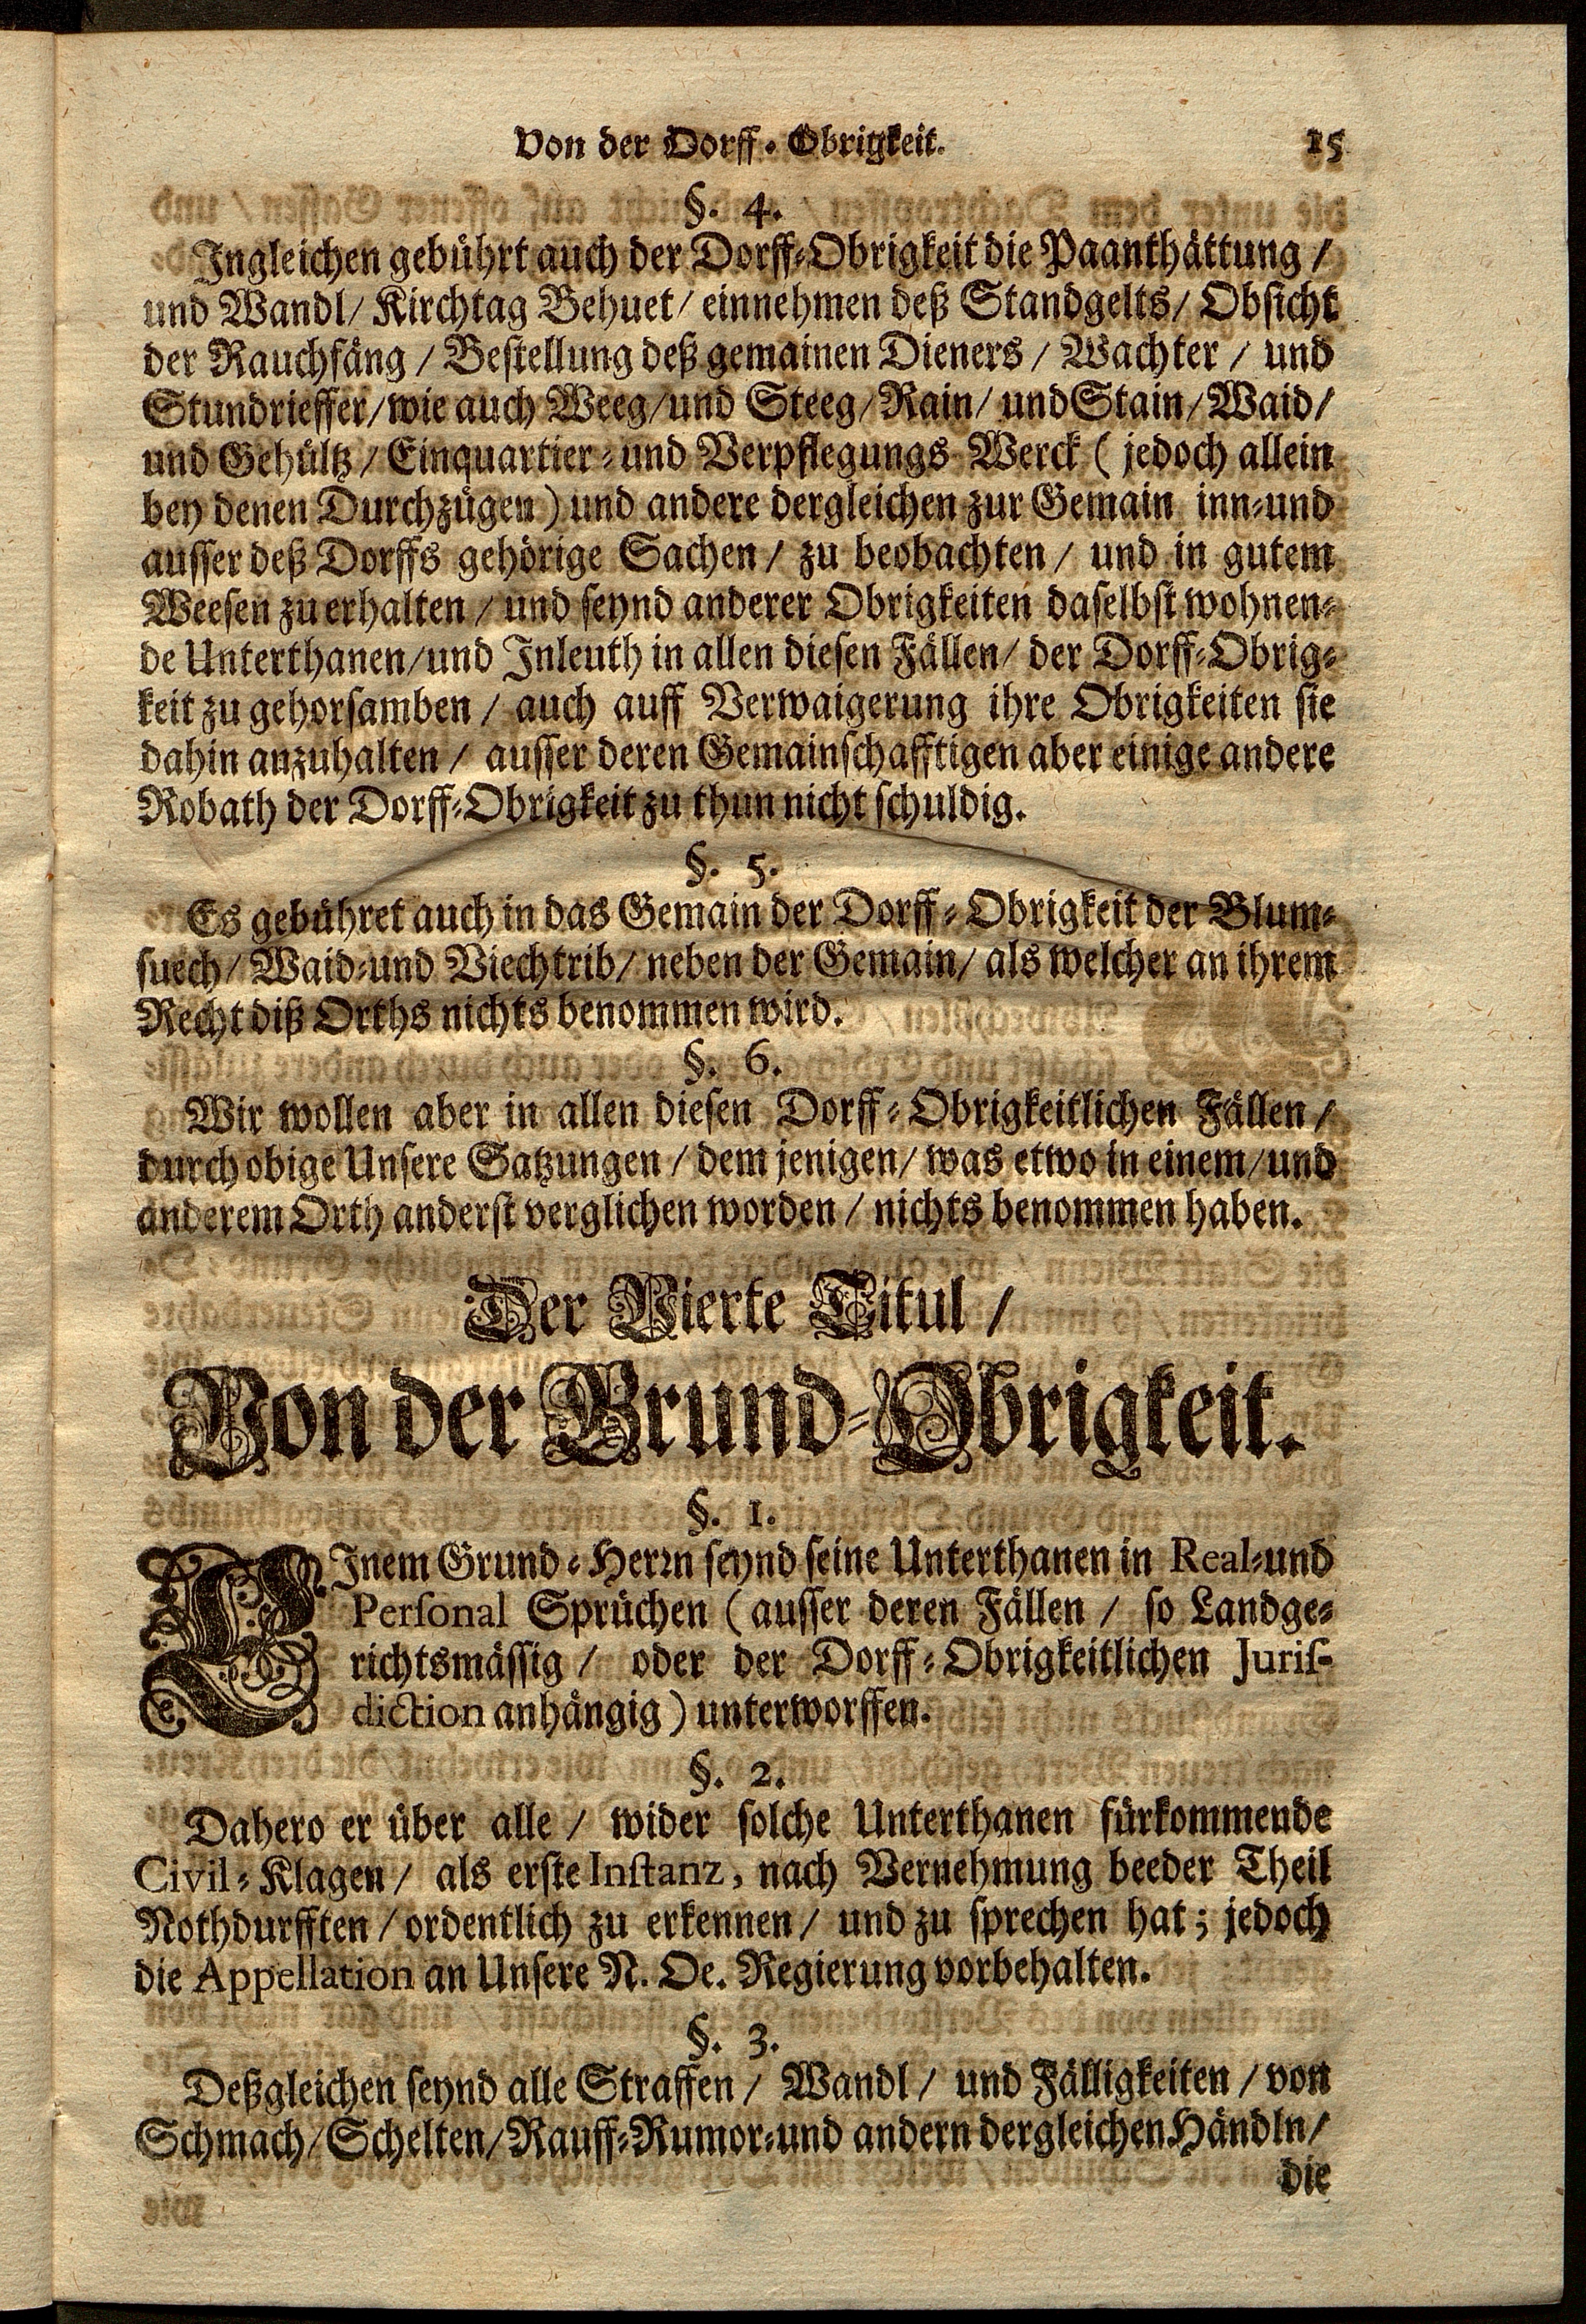 Von der Dorff-Obrigkeit. 15
§. 4.
Ingleichen gebührt auch der Dorff-Obrigkeit die Paanthättung /
und Wandl / Kirchtag Behuet / einnehmen deß Standgelts / Obsicht
der Rauchfäng / Bestellung deß gemainen Dieners / Wachter / und
Stundrieffer / wie auch Weeg / und Steeg / Rain / und Stain / Waid /
und Gehültz / Einquartier- und Verpflegungs Werck ( jedoch allein
bey denen Durchzügen ) und andere dergleichen zur Gemain inn- und
ausser deß Dorffs gehörige Sachen / zu beobachten / und in gutem
Weesen zu erhalten / und seynd anderer Obrigkeiten daselbst wohnen-
de Unterthanen / und Inleuth in allen diesen Fällen / der Dorff-Obrig-
keit zu gehorsamben / auch auff Verwaigerung ihre Obrigkeiten sie
dahin anzuhalten / ausser deren Gemainschafftigen aber einige andere
Robath der Dorff-Obrigkeit zu thun nicht schuldig.
§. 5.
Es gebühret auch in das Gemain der Dorff-Obrigkeit der Blum-
suech / Waid- und Viechtrib / neben der Gemain / als welcher an ihrem
Recht diß Orths nichts benommen wird.
§. 6.
Wir wollen aber in allen diesen Dorff-Obrigkeitlichen Fällen /
durch obige Unsere Satzungen / dem jenigen / was etwo in einem / und
anderem Orth anderst verglichen worden / nichts benommen haben.
Der Vierte Titul /
Von der Grund-Obrigkeit.
§. 1.
EInem Grund-Herrn seynd seine Unterthanen in Real- und
Personal Sprüchen ( ausser deren Fällen / so Landge-
richtsmässig / oder der Dorff-Obrigkeitlichen Juris-
diction anhängig ) unterworffen.
§. 2.
Dahero er über alle / wider solche Unterthanen fürkommende
Civil-Klagen / als erste Instanz, nach Vernehmung beeder Theil
Nothdurfften / ordentlich zu erkennen / und zu sprechen hat; jedoch
die Appellation an Unsere N. Oe. Regierung vorbehalten.
§. 3.
Deßgleichen seynd alle Straffen / Wandl / und Fälligkeiten / von
Schmach / Schelten / Rauff-Rumor- und andern dergleichen Händln /
die